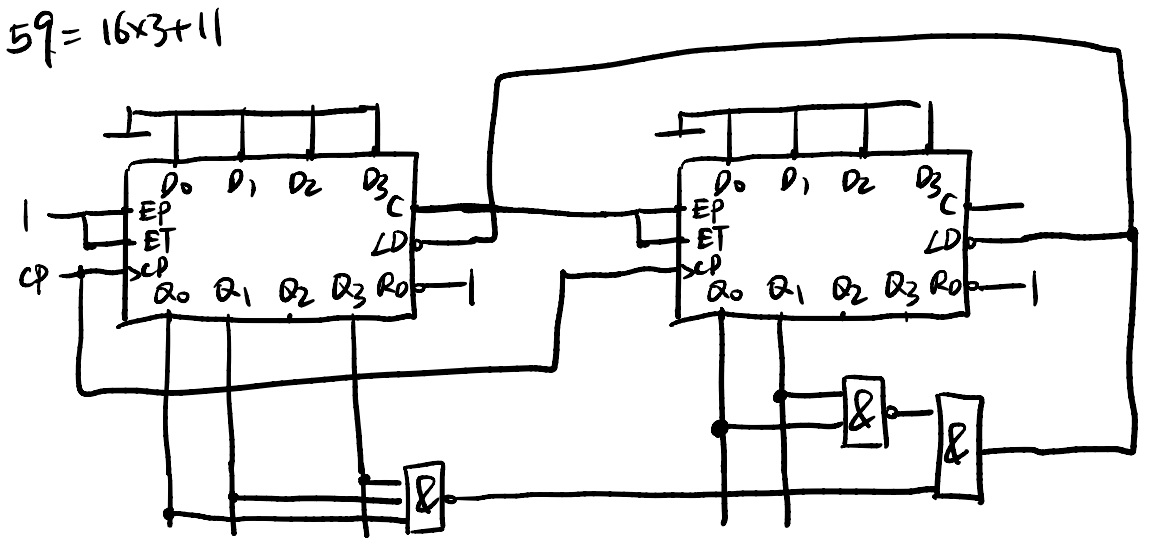 59 = 16×3+11
D0 D1 D2 D3
1 EP C
ET LD
CP CP
Q0 Q1 Q2 Q3 RD 1
&
D0 D1 D2 D3
EP C
ET LD
CP
Q0 Q1 Q2 Q3 RD 1
&
&